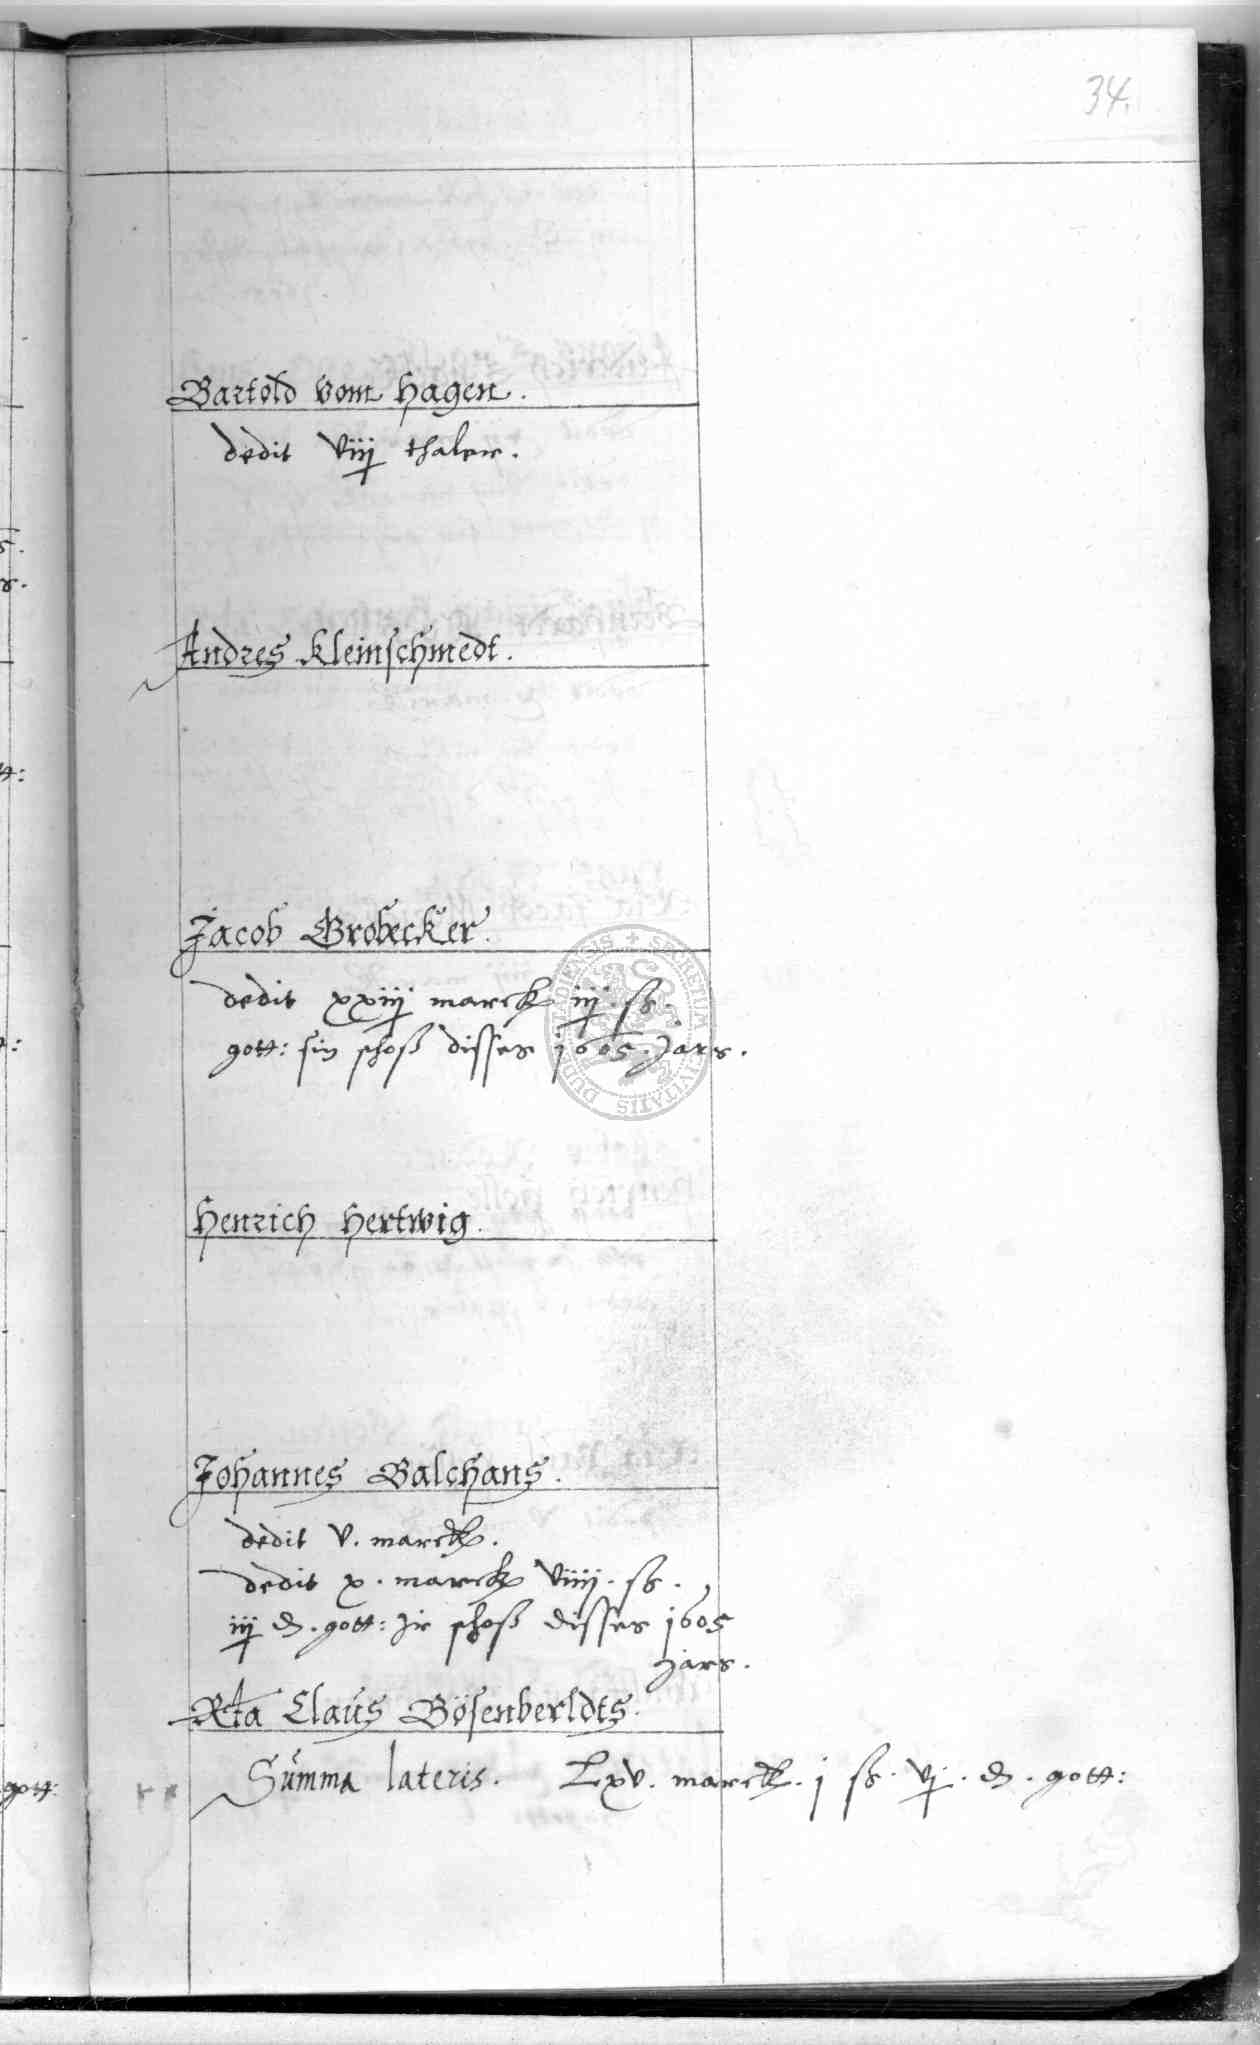 34.
Bartold vom Hagen.
dedit viij thaler.
Andres Kleinschmedt.
Jacob Grobecker.
dedit xxiij marck iij. ß.
gott: sin schoß disses 1605. Jars.
Henrich Hertwig.
Johannes Balchans.
dedit v. marck.
dedit x. marck viiij. ß.
iij ₰. gott: Jr schoß disses 1605
Jars.
Rta Claus Bösenberldts.
Summa lateris. Lxv. marck. j ß. vj. ₰. gott:
gott: